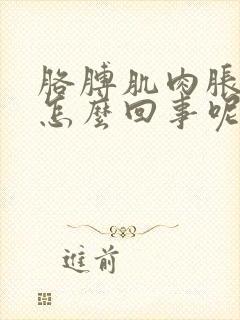 胳膊肌肉胀
怎麼回事呢
進前